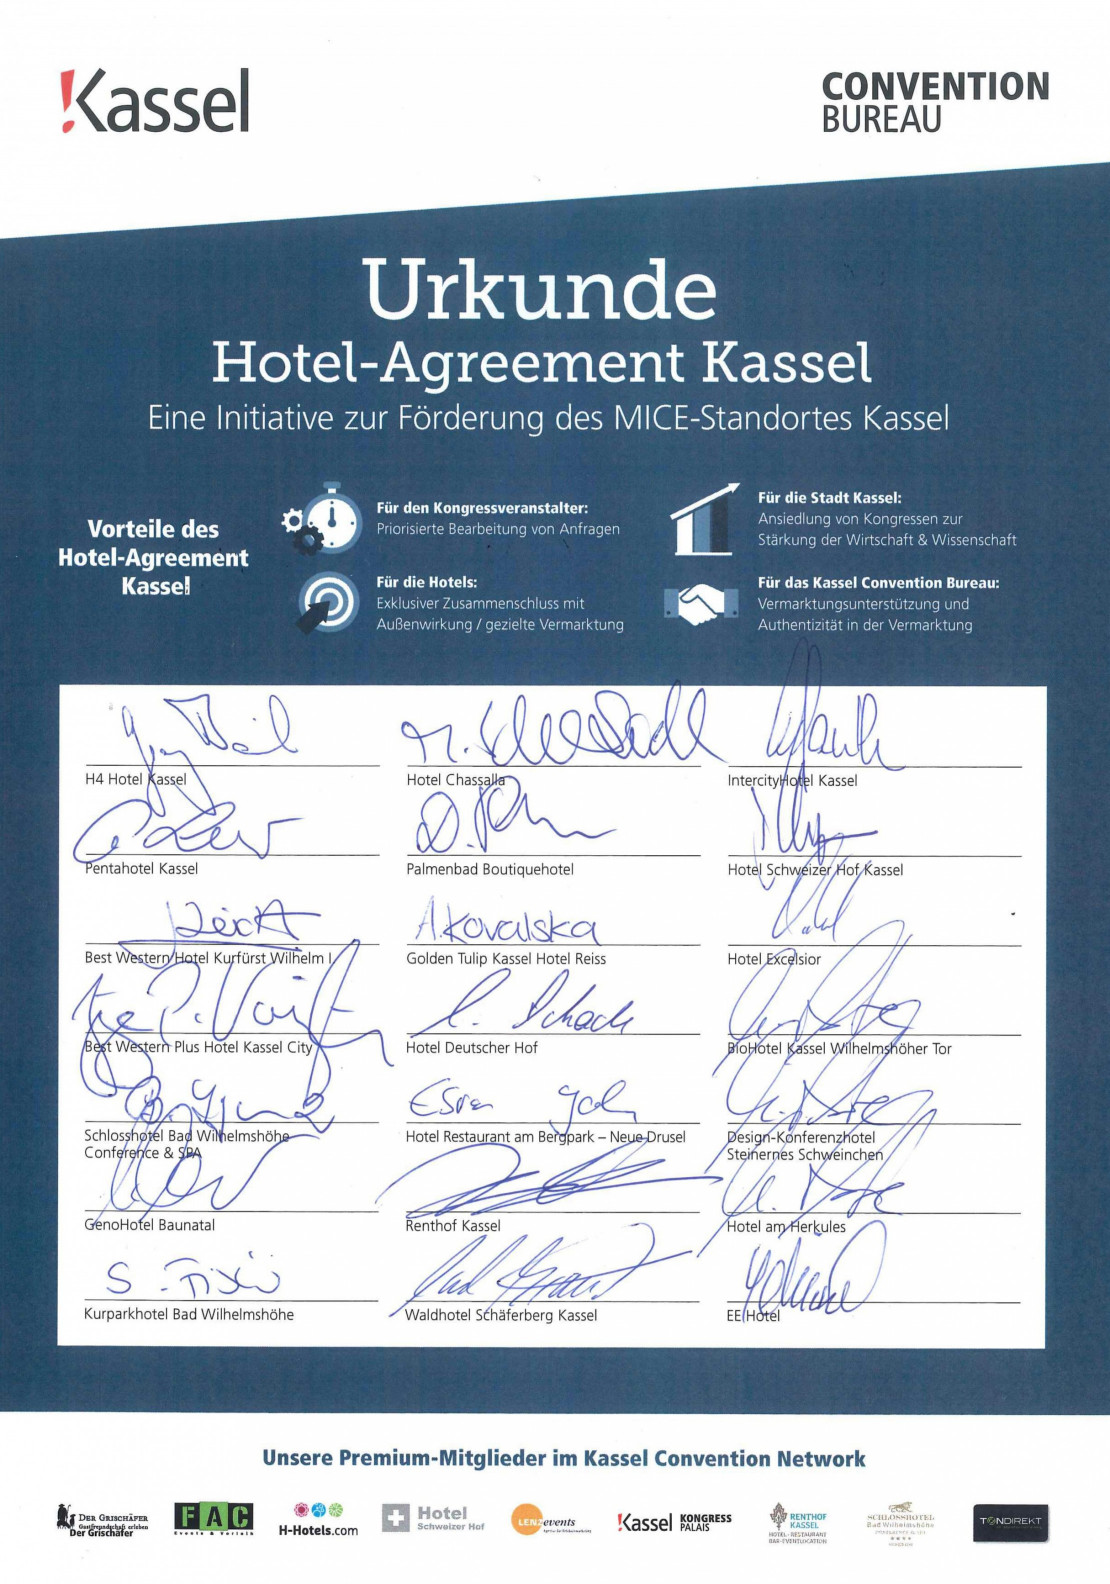 !Kassel
CONVENTION
BUREAU
Urkunde
Hotel-Agreement Kassel
Eine Initiative zur Förderung des MICE-Standortes Kassel
Vorteile des
Hotel-Agreement
Kassel
Für den Kongressveranstalter:
Priorisierte Bearbeitung von Anfragen
Für die Hotels:
Exklusiver Zusammenschluss mit
Außenwirkung / gezielte Vermarktung
Für die Stadt Kassel:
Ansiedlung von Kongressen zur
Stärkung der Wirtschaft & Wissenschaft
Für das Kassel Convention Bureau:
Vermarktungsunterstützung und
Authentizität in der Vermarktung
H4 Hotel Kassel
Hotel Chassalla
IntercityHotel Kassel
Pentahotel Kassel
Palmenbad Boutiquehotel
Hotel Schweizer Hof Kassel
A. Kovalska
Best Western Hotel Kurfürst Wilhelm I.
Golden Tulip Kassel Hotel Reiss
Hotel Excelsior
Best Western Plus Hotel Kassel City
Hotel Deutscher Hof
BioHotel Kassel Wilhelmshöher Tor
Schlosshotel Bad Wilhelmshöhe
Conference & SPA
Hotel Restaurant am Bergpark – Neue Drusel
Design-Konferenzhotel
Steinernes Schweinchen
GenoHotel Baunatal
Renthof Kassel
Hotel am Herkules
Kurparkhotel Bad Wilhelmshöhe
Waldhotel Schäferberg Kassel
EE Hotel
Unsere Premium-Mitglieder im Kassel Convention Network
DER GRISCHÄFER
Gastfreundschaft erleben
Der Grischäfer
FAC
Events & Vertrieb
H-Hotels.com
Hotel
Schweizer Hof
LENZ events
!Kassel KONGRESS
PALAIS
RENTHOF
KASSEL
HOTEL-RESTAURANT
BAR-EVENTLOCATION
SCHLOSSHOTEL
Bad Wilhelmshöhe
TONDIREKT